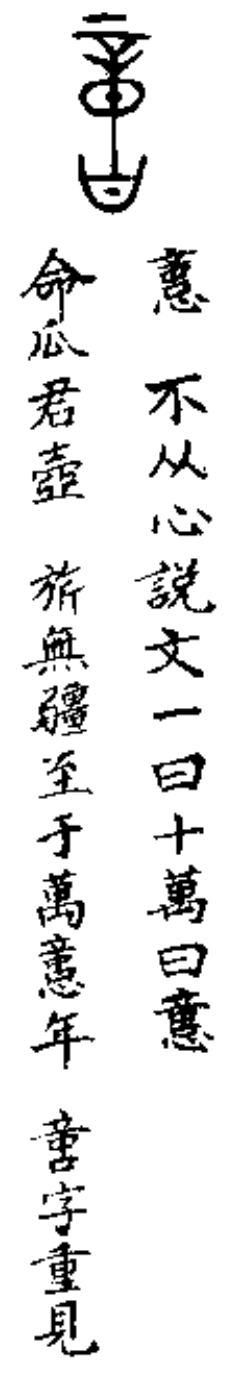 𢡃 不从心説文一曰十萬曰𢡃
命瓜君壺 旂無疆至于萬𢡃年 𠶷字重見